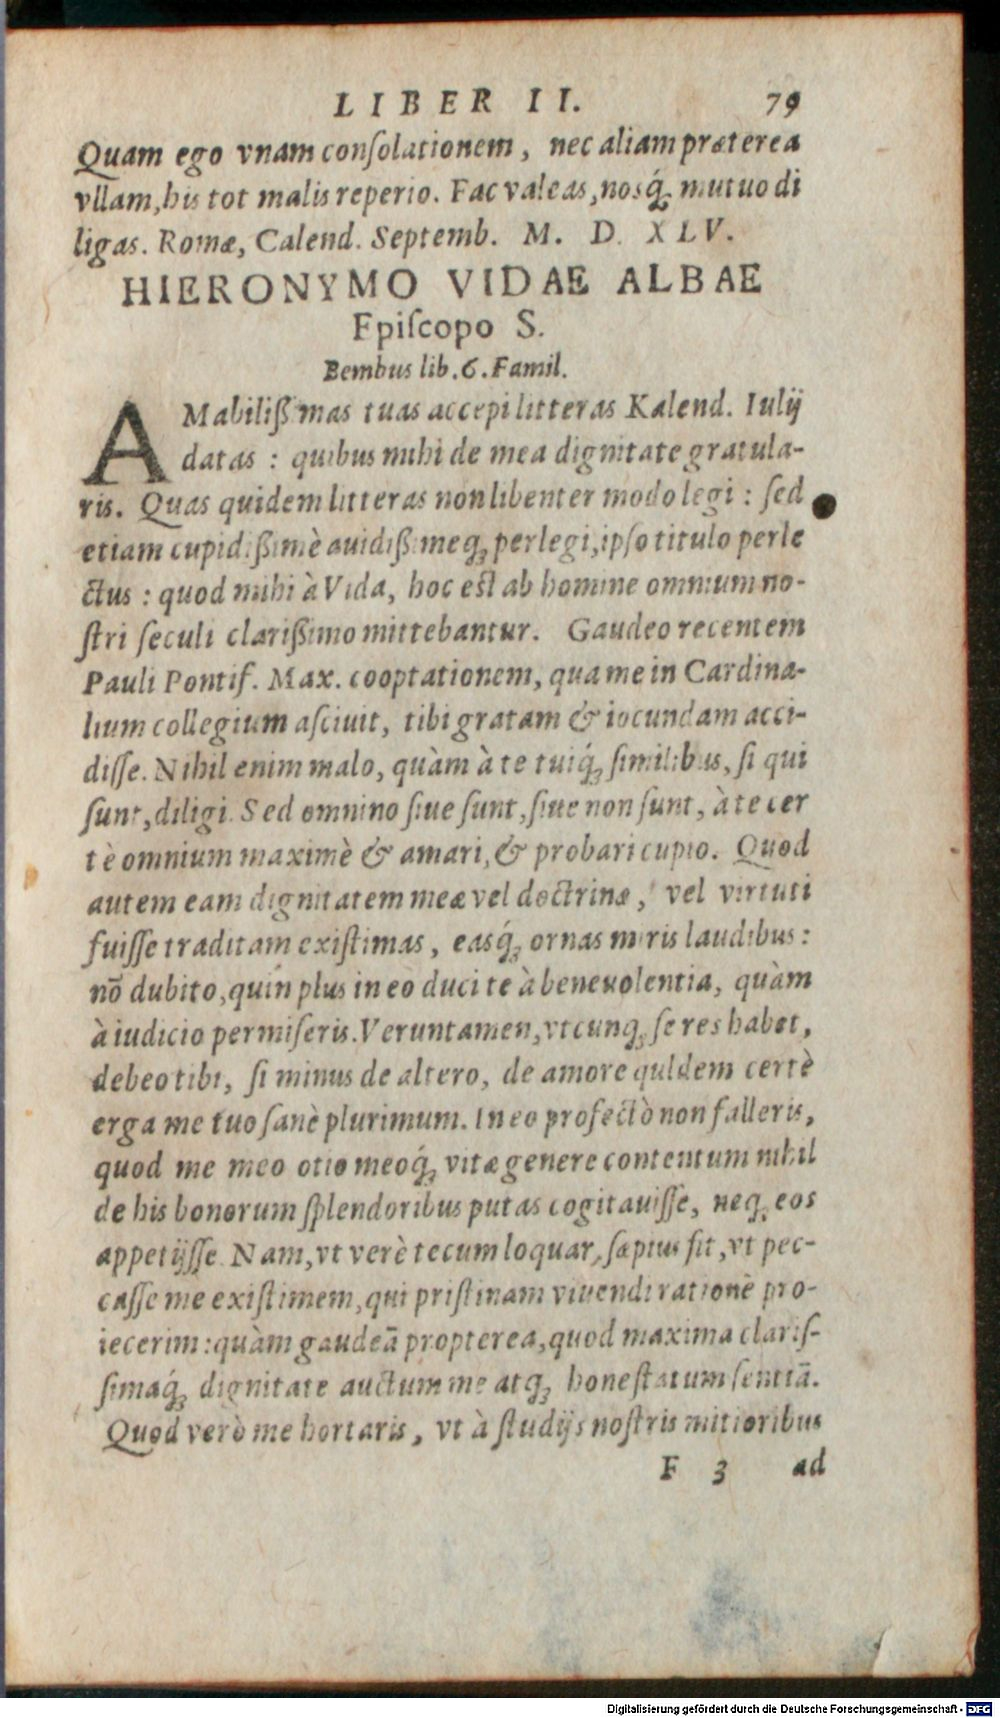 LIBER II. 79
Quam ego vnam conſolationem, nec aliam præterea
vllam, his tot malis reperio. Fac valeas, nosq́ꝫ mutuo di
ligas. Romæ, Calend. Septemb. M. D. XLV.
HIERONYMO VIDAE ALBAE
Epiſcopo S.
Bembus lib. 6. Famil.
AMabilißimas tuas accepi litteras Kalend. Iulij
datas : quibus mihi de mea dignitate gratula-
ris. Quas quidem litteras non libenter modo legi : ſed
etiam cupidißimè auidißimeqꝫ perlegi, ipſo titulo perle
ctus : quod mihi à Vida, hoc eſt ab homine omnium no-
ſtri ſeculi clarißimo mittebantur. Gaudeo recentem
Pauli Pontif. Max. cooptationem, qua me in Cardina-
lium collegium aſciuit, tibi gratam & iocundam acci-
diſſe. Nihil enim malo, quàm à te tuiq́ꝫ ſimilibus, ſi qui
ſunt, diligi. Sed omnino ſiue ſunt, ſiue non ſunt, à te cer
tè omnium maximè & amari, & probari cupio. Quod
autem eam dignitatem meæ vel doctrinæ, vel virtuti
fuiſſe traditam exiſtimas, easq́ꝫ ornas miris laudibus :
nõ dubito, quin plus in eo duci te à beneuolentia, quàm
à iudicio permiſeris. Veruntamen, vtcunqꝫ ſe res habet,
debeo tibi, ſi minus de altero, de amore quidem certè
erga me tuo ſanè plurimum. In eo profectò non falleris,
quod me meo otio meoq́ꝫ vitæ genere contentum nihil
de his bonorum ſplendoribus putas cogitauiſſe, neqꝫ eos
appetijſſe. Nam, vt verè tecum loquar, ſæpius fit, vt pec-
caſſe me exiſtimem, qui priſtinam viuendi rationẽ pro-
iecerim : quàm gaudeã propterea, quod maxima clariſ-
ſimaq́ꝫ dignitate auctum me atqꝫ honeſtatum ſentiã.
Quod verò me hortaris, vt à ſtudijs noſtris mitioribus
F 3 ad
Digitalisierung gefördert durch die Deutsche Forschungsgemeinschaft - DFG